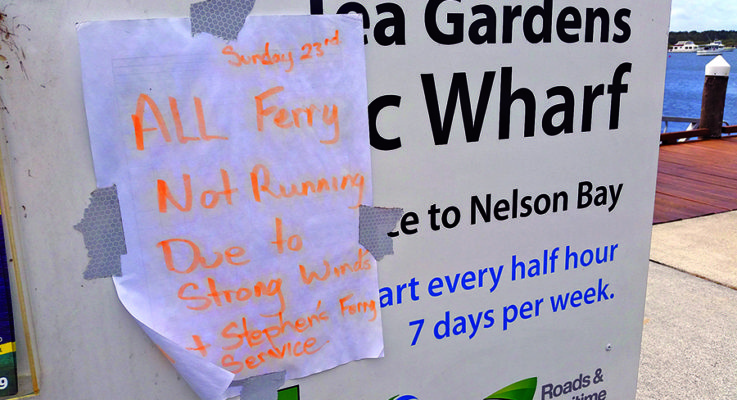 Sunday 23rd
ALL Ferry
Not Running
Due to
Strong Winds
Stephen's Ferry
Service
Tea Gardens
c Wharf
e to Nelson Bay
art every half hour
7 days per week.
Roads &
9